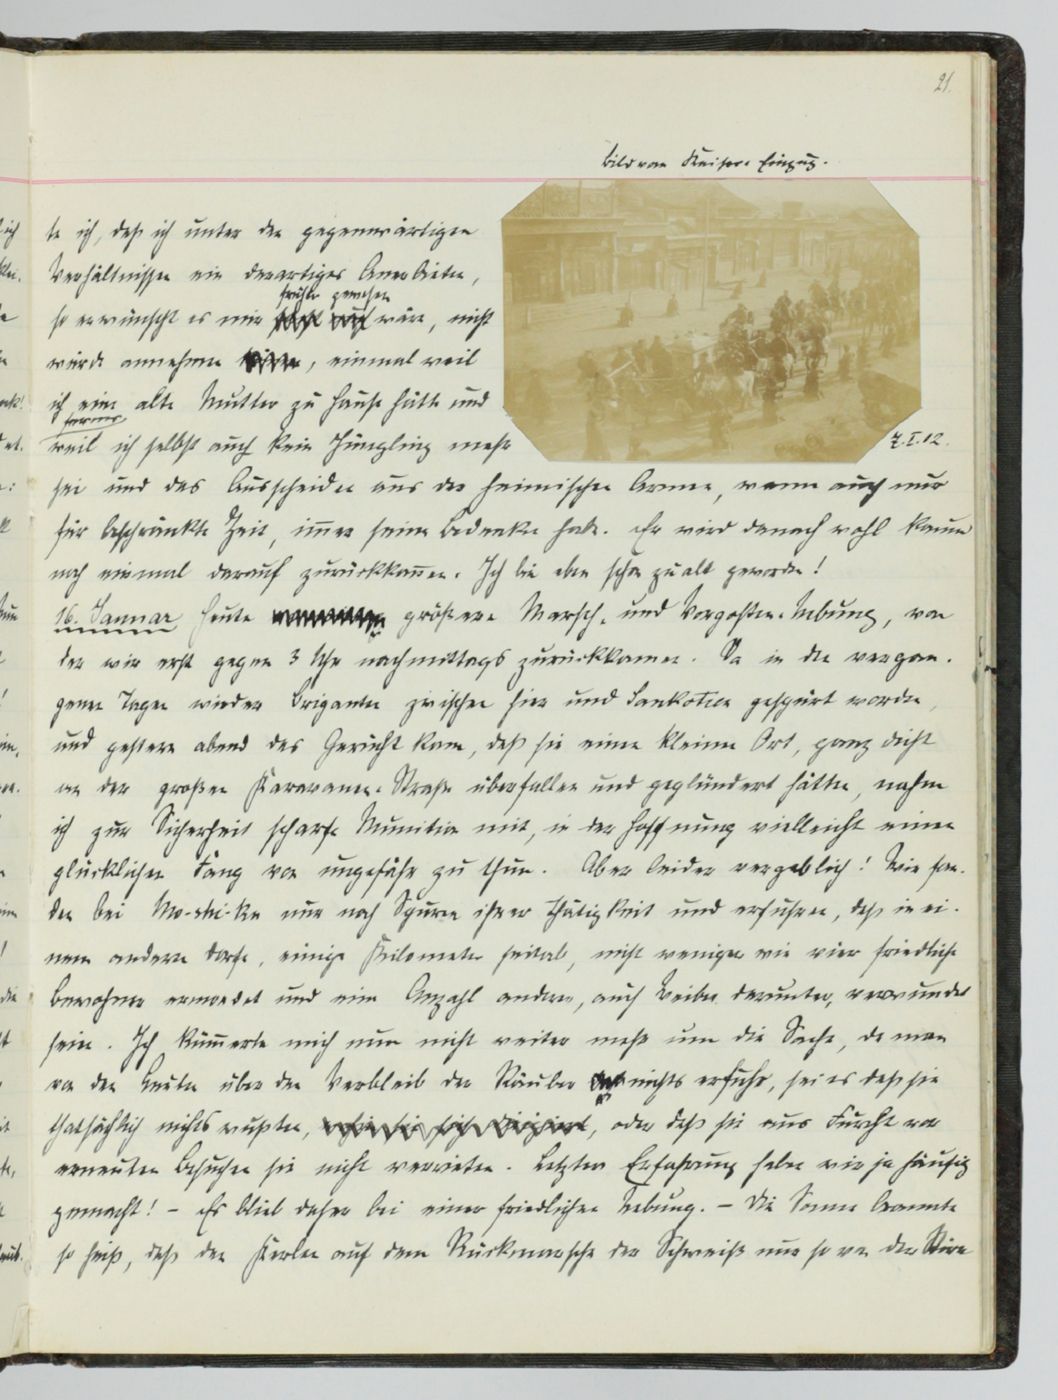 21.
Bild vom Kaiser-Einzug.
te ich, daß ich unter den gegenwärtigen
Verhältnissen ein derartiges Anerbieten,
früher gewesen
so erwünscht es mir wäre, nicht
würde annehmen, einmal weil
ich eine alte Mutter zu Hause hätte und
ferner
weil ich selbst auch kein Jüngling mehr
7.I.02.
sei und das Ausscheiden aus der heimischen Armee, wenn auch nur
für beschränkte Zeit, im̄er seine Bedenken habe. Er wird danach wohl kaum
noch einmal darauf zurückkom̄en. Ich bin eben schon zu alt geworden!
16. Januar Heute größere Marsch- und Vorposten-Uebung, von
der wir erst gegen 3 Uhr nachmittags zurückkamen. Da in den vergan-
genen Tagen wieder Briganten zwischen hier und Lankotien gespürt worden,
und gestern abend das Gerücht kam, daß sie einen kleinen Ort, ganz dicht
an der großen Karawanen-Straße überfallen und geplündert hätten, nahm
ich zur Sicherheit scharfe Munition mit, in der Hoffnung vielleicht einen
glücklichen Fang von ungefähr zu thun. Aber leider vergeblich! Wir fan-
den bei Mo-shi-ku nur noch Spuren ihrer Thätigkeit und erfuhren, daß in ei-
nem andern Dorfe, einige Kilometer seitab, nicht weniger wie vier friedliche
Bewohner ermordet und eine Anzahl andere, auch Weiber darunter, verwundet
seien. Ich küm̄erte mich nun nicht weiter mehr um die Sache, da man
von den Leuten über den Verbleib der Räuber nichts erfuhr, sei es daß sie
thatsächlich nichts wußten, oder daß sie aus Furcht vor
erneuten Besuchen sie nicht verrieten. Letztere Erfahrung haben wir ja häufig
gemacht! – Es blieb daher bei einer friedlichen Uebung. – Die Sonne brannte
so heiß, daß den Kerlen auf dem Rückmarsche der Schweiß nur so von der Stirn